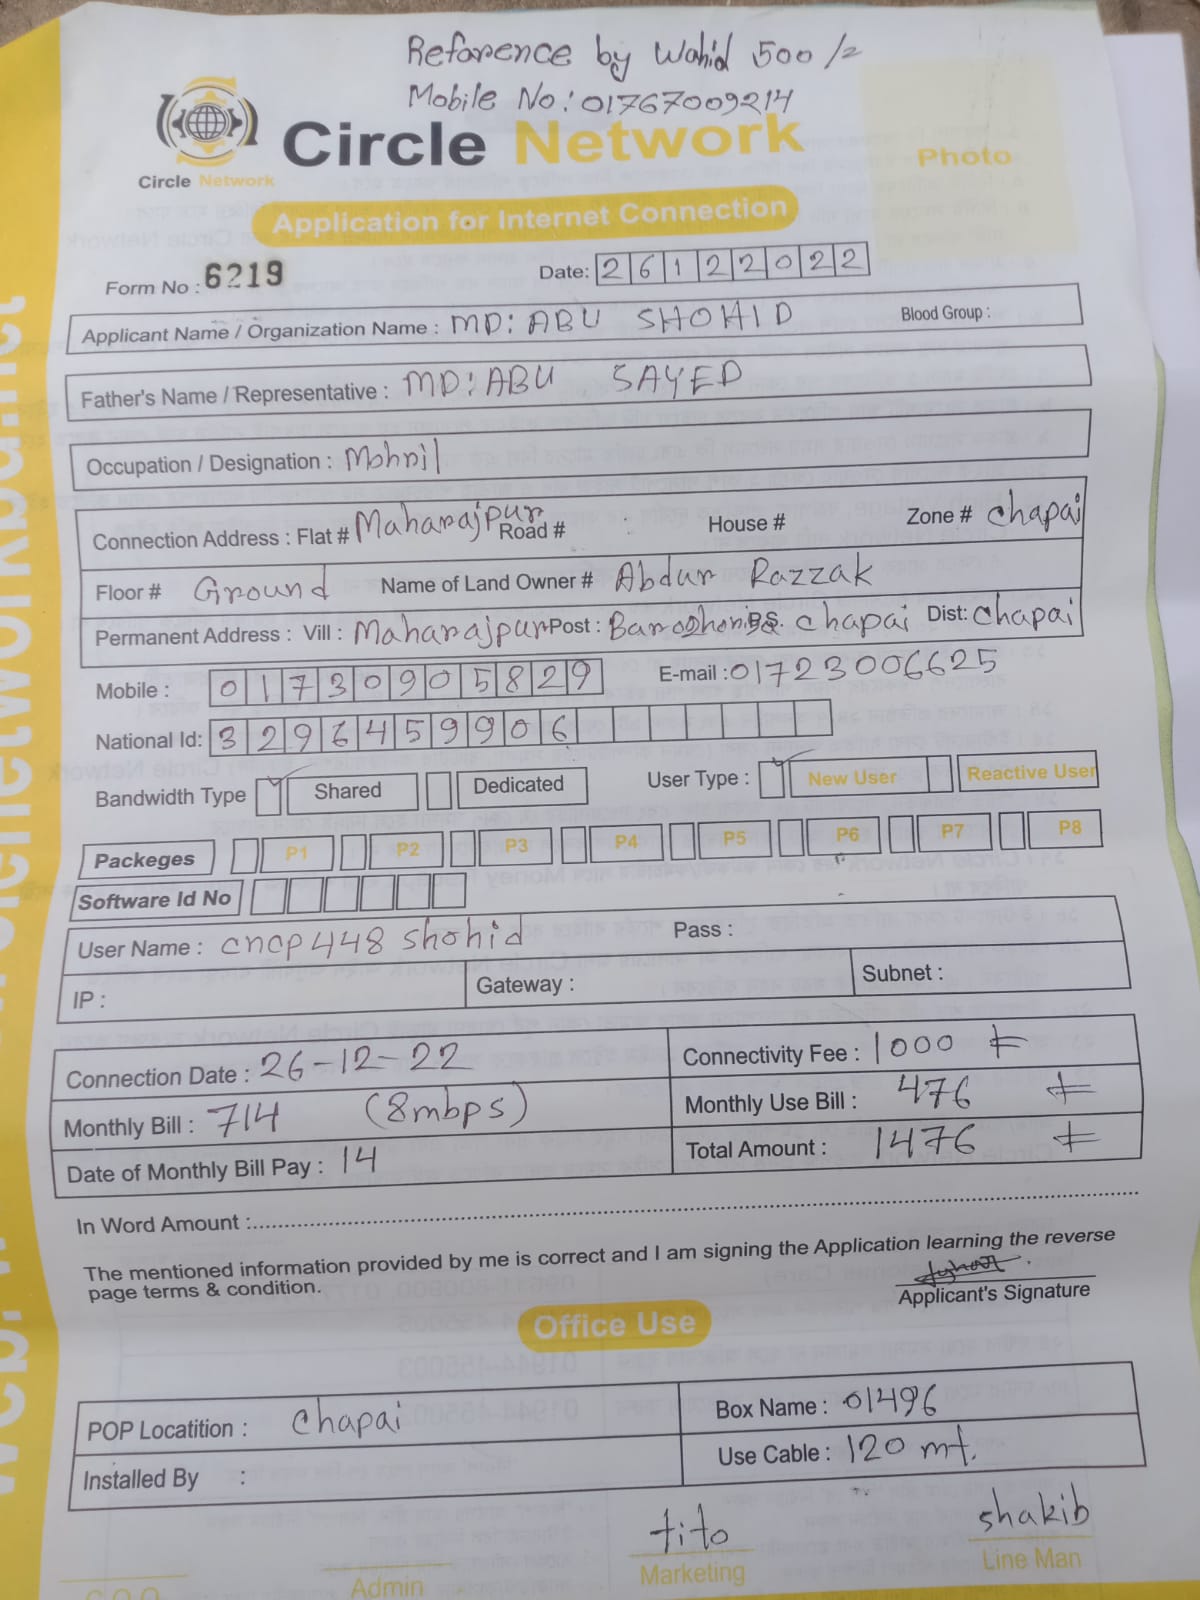 Reference by Wahid 500/=
Mobile No: 01767009214
Circle Network
Circle Network
Photo
Application for Internet Connection
Form No : 6219 Date: 26122022
Applicant Name / Organization Name : MD: ABU SHOHID Blood Group :
Father's Name / Representative : MD: ABU SAYED
Occupation / Designation :
Connection Address : Flat # Maharajpur Road # House # Zone # chapai
Floor # Ground Name of Land Owner # Abdur Razzak
Permanent Address : Vill : Maharajpur Post : P.S. chapai Dist: chapai
Mobile : 01730905829 E-mail : 01723006625
National Id: 3296459906
Bandwidth Type Shared Dedicated User Type : New User Reactive User
Packeges P1 P2 P3 P4 P5 P6 P7 P8
Software Id No
User Name : cncp448 shohid Pass :
IP : Gateway : Subnet :
Connection Date : 26-12-22 Connectivity Fee : 1000
Monthly Bill : 714 (8mbps) Monthly Use Bill : 476
Date of Monthly Bill Pay : 14 Total Amount : 1476
In Word Amount :
The mentioned information provided by me is correct and I am signing the Application learning the reverse
page terms & condition.
Applicant's Signature
Office Use
POP Locatition : chapai Box Name : 01496
Installed By : Use Cable : 120 mt.
tito shakib
Admin Marketing Line Man